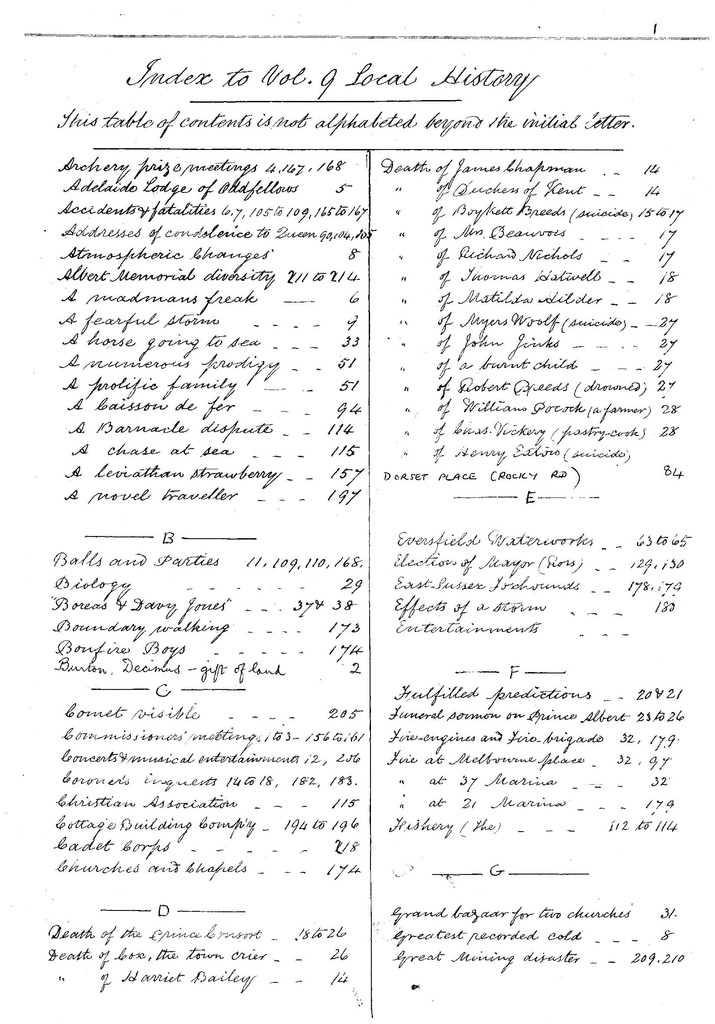 1
Index to Vol. 9 Local History
This table of contents is not alphabeted beyond the initial letter.
Archery prize meetings 4, 167, 168
Adelaide Lodge of Oddfellows 5
Accidents & fatalities 6, 7, 105 to 109, 165 to 167
Addresses of condolence to Queen 90, 104, 105
Atmospheric Changes 8
Albert Memorial diversity 211 to 214
A madmans freak —— 6
A fearful storm - - - - 9
A horse going to sea - - - 33
A numerous prodigy - - 51
A prolific family —— - - 51
A Caisson de fer - - - 94
A Barnacle dispute - - 114
A chase at sea - - - 115
A leviathan strawberry - - 157
A novel traveller - - - 197
— B —
Balls and Parties 11, 109, 110, 168.
Biology - - - - - 29
"Boreas & Davy Jones" - - - 37 & 38
Boundary walking - - - - 173
Bonfire Boys - - - - - 174
Burton, Decimus - gift of land 2
— C —
Comet visible - - - - 205
Commissioners' meetings, 1 to 3 - 156 to 161
Concerts & musical entertainments 12, 206
Coroner's inquests 14 to 18, 182, 183.
Christian Association - - - 115
Cottage Building Comp'y - 194 to 196
Cadet Corps - - - - - 218
Churches and Chapels - - - 174
— D —
Death of the Prince Consort - - 18 to 26
Death of Cox, the town crier - - 26
" of Harriet Bailey - - 14
Death of James Chapman - - 14
" of Duchess of Kent - - 14
" of Boykett Breeds (suicide) 15 to 17
" of Mrs. Beauvois - - 17
" of Richard Nichols - - 17
" of Thomas Hatwell - - 18
" of Matilda Hilder - - 18
" of Myers Woolf (suicide) - - 27
" of John Jinks - - - 27
" of a burnt child - - 27
" of Robert Breeds (drowned) 27
" of William Pocock (a farmer) 28
" of Chas. Vickery (pastry-cook) 28
" of Henry Eaton (suicide)
DORSET PLACE (ROCKY RD) 84
— E —
Eversfield Waterworks - - 63 to 65
Election of Mayor (Ross) - - 129, 130
East-Sussex Foxhounds - - 178, 179
Effects of a storm - - - 180
Entertainments - -
— F —
Fulfilled predictions - - 20 & 21
Funeral sermon on Prince Albert 23 to 26
Fire-engines and Fire-brigade 32, 179.
Fire at Melbourne place - 32, 97
" at 37 Marina - - - 32
" at 21 Marina - - - 179
Fishery (the) - - - 112 to 114
— G —
Grand bazaar for two churches 31.
Greatest recorded cold - - - 8
Great Mining disaster - - 209, 210